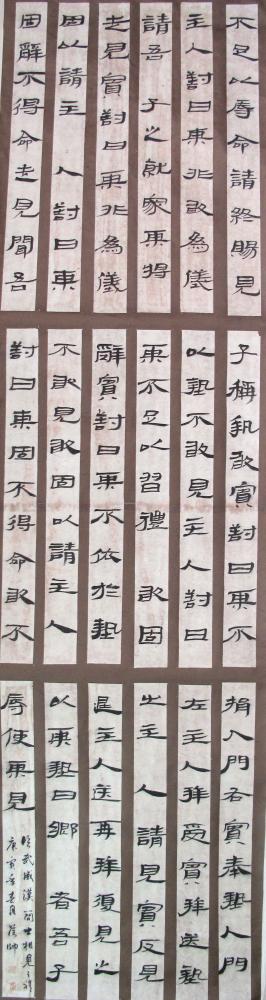 不足以辱命請終賜見
主人對曰某非敢為儀
請吾子之就家某將
走見賓對曰某非為儀
固以請主人對曰某
固辭不得命走見聞吾
子稱執敢賓對曰某不
以墊不敢見主人對曰
某不足以習禮敢固
辭賓對曰某不依於墊
不敢見敢固以請主人
對曰某固不得命敢不
揖入門右賓奉墊入門
左主人拜受賓拜送墊
出主人請見賓反見
退主人送再拜復見之
以某墊曰鄉者吾子
辱使某見
臨武威漢簡士相見之禮
庚寅年春月